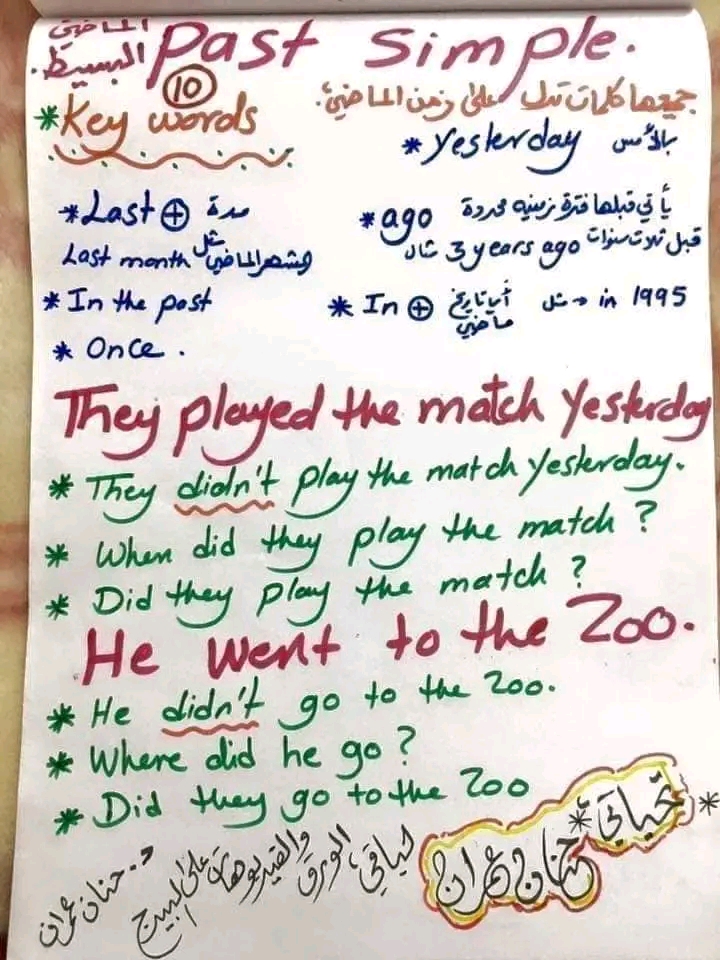 الماضي البسيط. Past simple.
10
* Key words
جميعها كلمات تدل على زمن الماضي.
* Yesterday بالأمس
* Last + مدة
Last month مثل الشهر الماضي
* ago يأتي قبلها فترة زمنية محددة
مثال 3 years ago قبل ثلاث سنوات
* In the past
* In + أي تاريخ ماضي مثل → in 1995
* Once.
They played the match Yesterday
* They didn't play the match yesterday.
* When did they play the match ?
* Did they play the match ?
He went to the Zoo.
* He didn't go to the Zoo.
* Where did he go ?
* Did they go to the Zoo
تحياتي * حنان عمران *
لباقي الورق والفيديوهات على البيج
د. حنان عمران